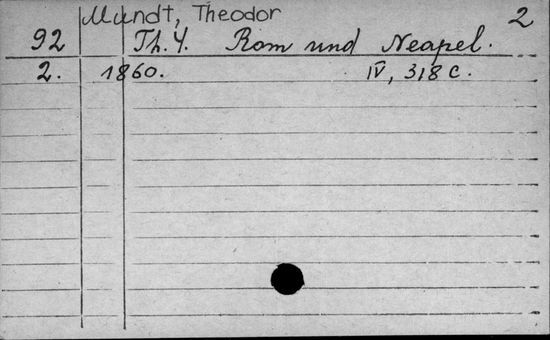 Mundt, Theodor 2
92 Th. 4. Rom und Neapel.
2. 1860. IV, 318 c.